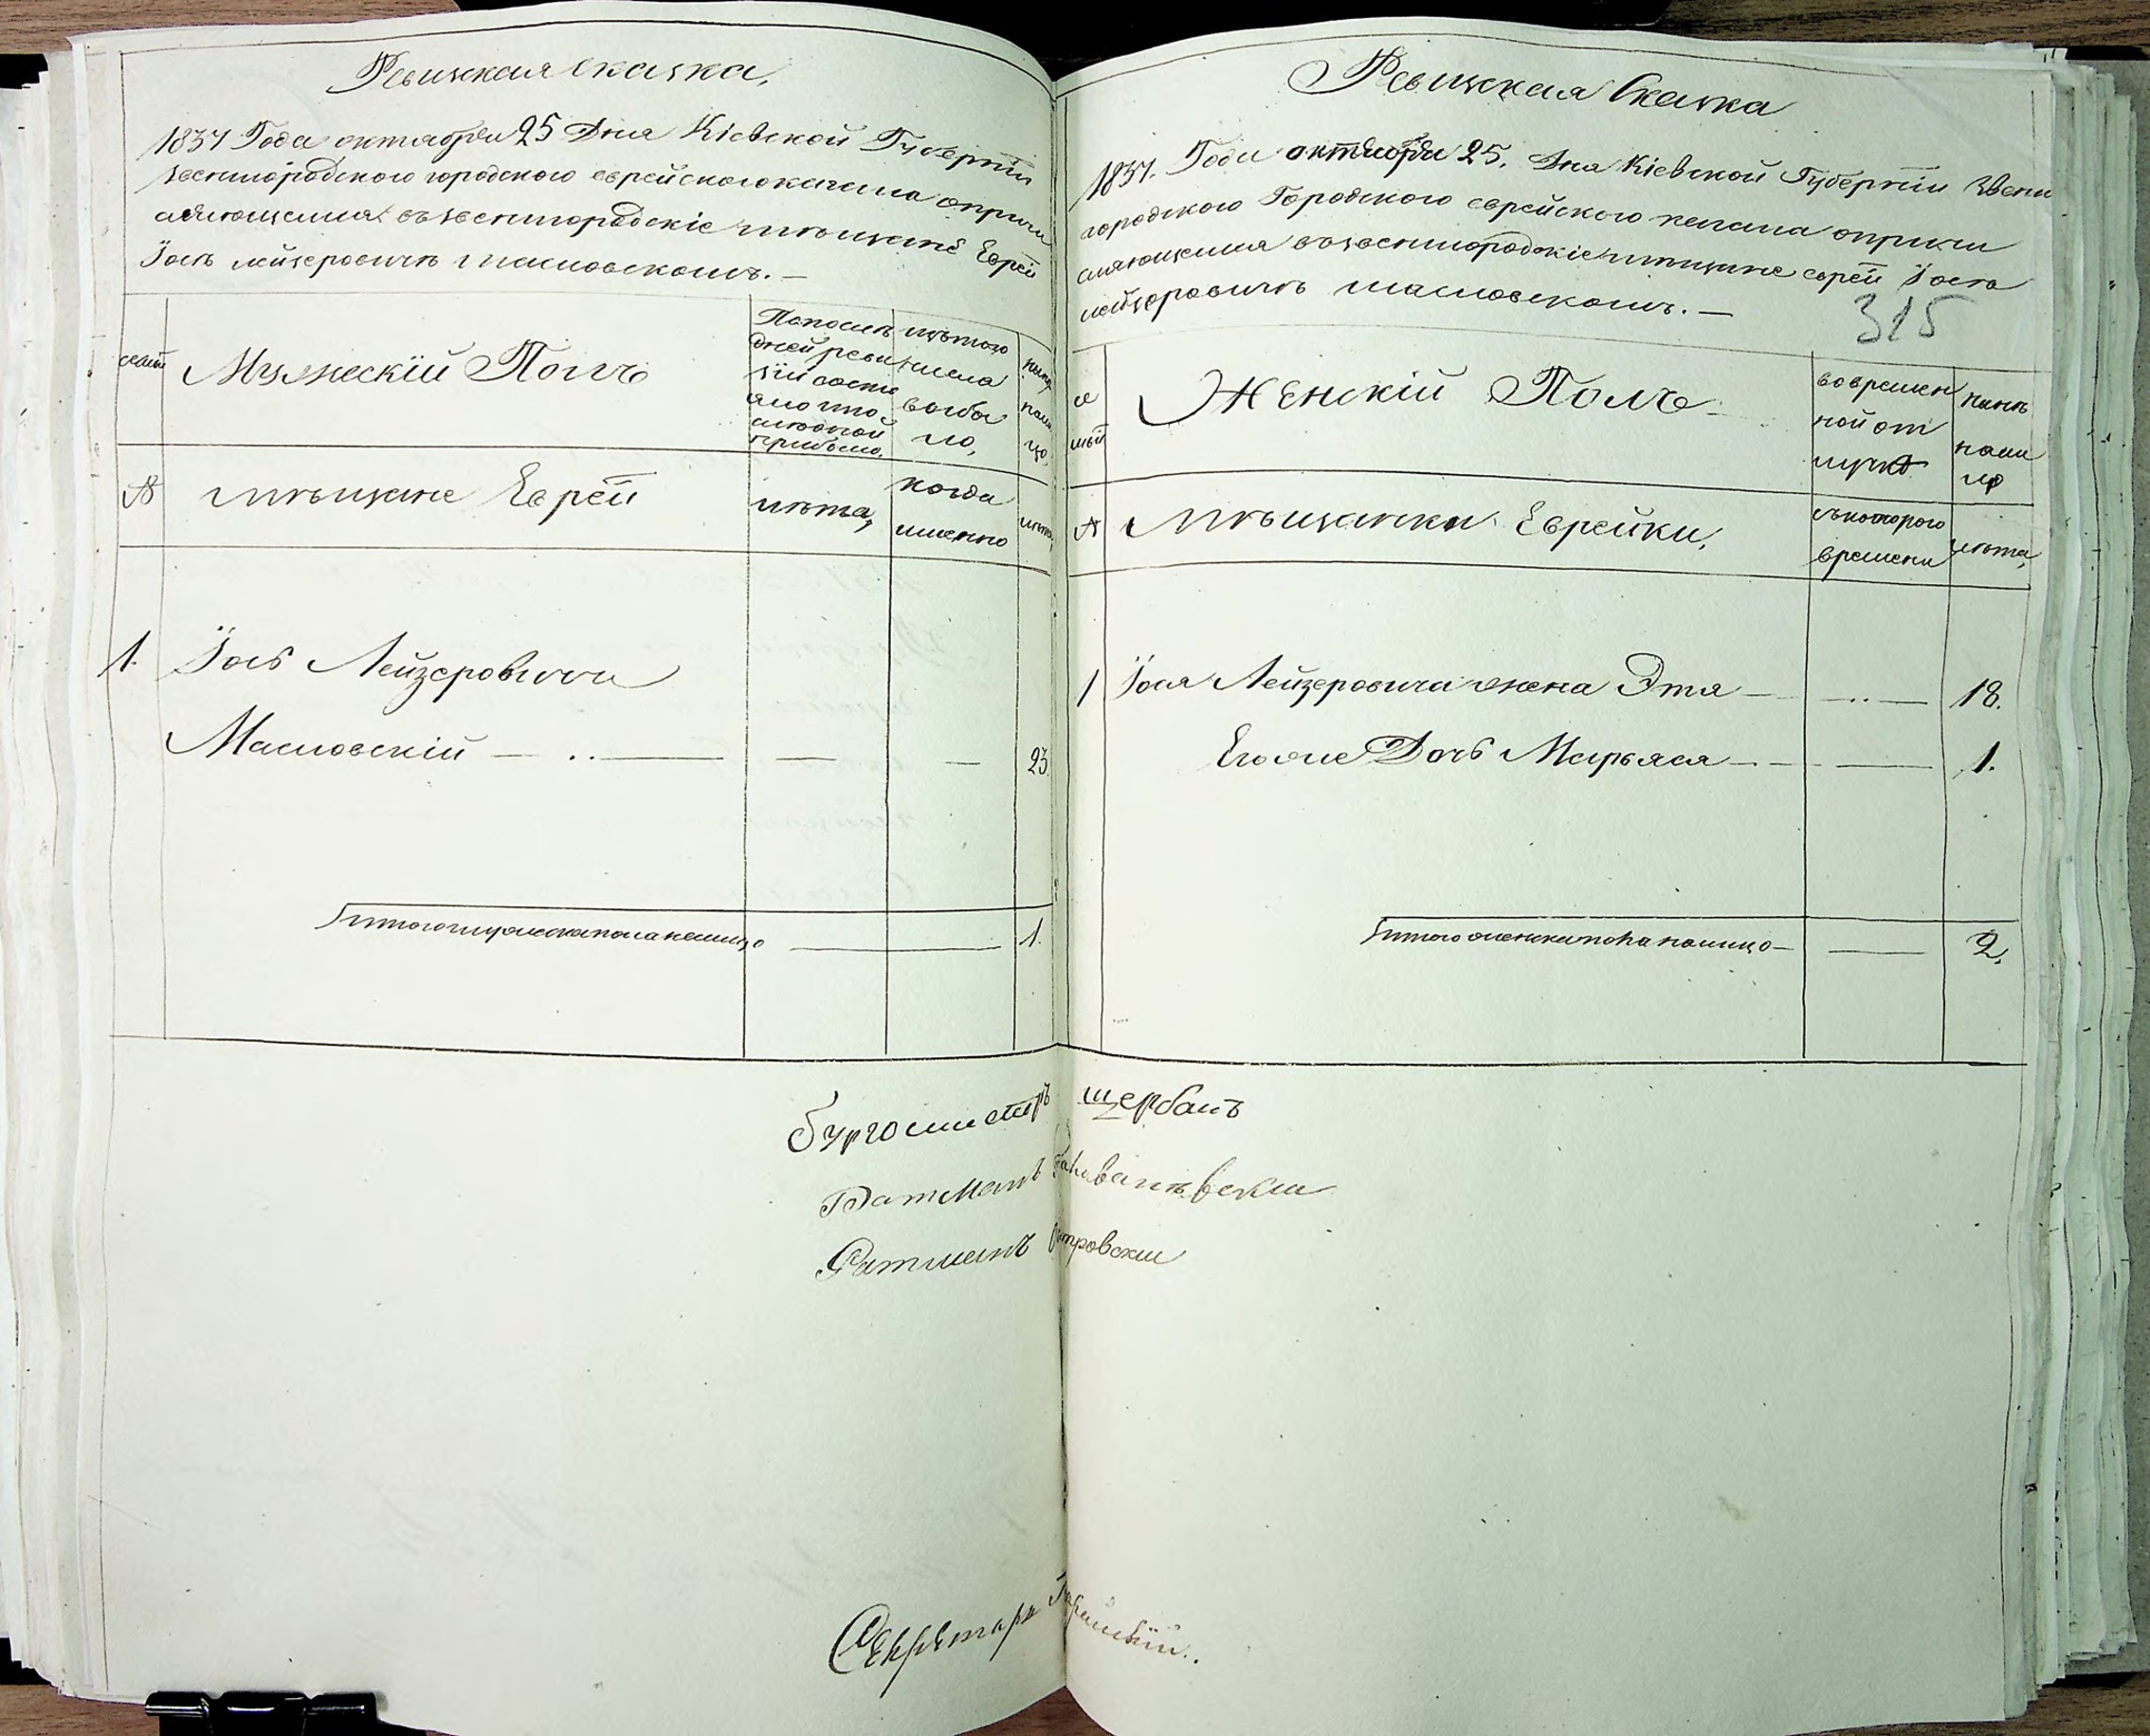 Ревизская сказка,
1837 Года октября 25 Дня Кіевской Губерніи
звенигородского городского еврейского кагала опричи
сляющемся въ звенигородскіе мѣщане Еврей
Іось лейзеровичъ масловскомъ. —
семьи
Мужескій Полъ
По после
дней реви
зіи состо
яло и по
слѣ оной
прибыло,
изъ того
числа
выбы
ло,
нынѣ
нали
цо,
№
мѣщане Еврей
лѣта,
когда
именно
лѣта,
1. Іось Лейзеровичъ
Масловскій — .. — — — 23.
Итого мужеска пола налицо — 1.
Ревизская Сказка
1837. Года октября 25. Дня Кіевской Губерніи Звени
городского Городского еврейского кагала опричи
сляющемся въ звенигородскіе мѣщане еврей Іось
лейзеровичъ масловскомъ. —
315
се
мьи
Женскій Полъ
во времен
ной от
лучкѣ
нынѣ
нали
цо
№
Мѣщанки Еврейки,
съ котораго
времени
лѣта,
1 Іося Лейзеровича жена Этя — — .. — 18.
Его же Дочь Марьяся — — — 1.
Итого женска пола налицо — — 2.
Бургомистръ Щербань
Ратманъ
Ратманъ Петровскій
Секретарь